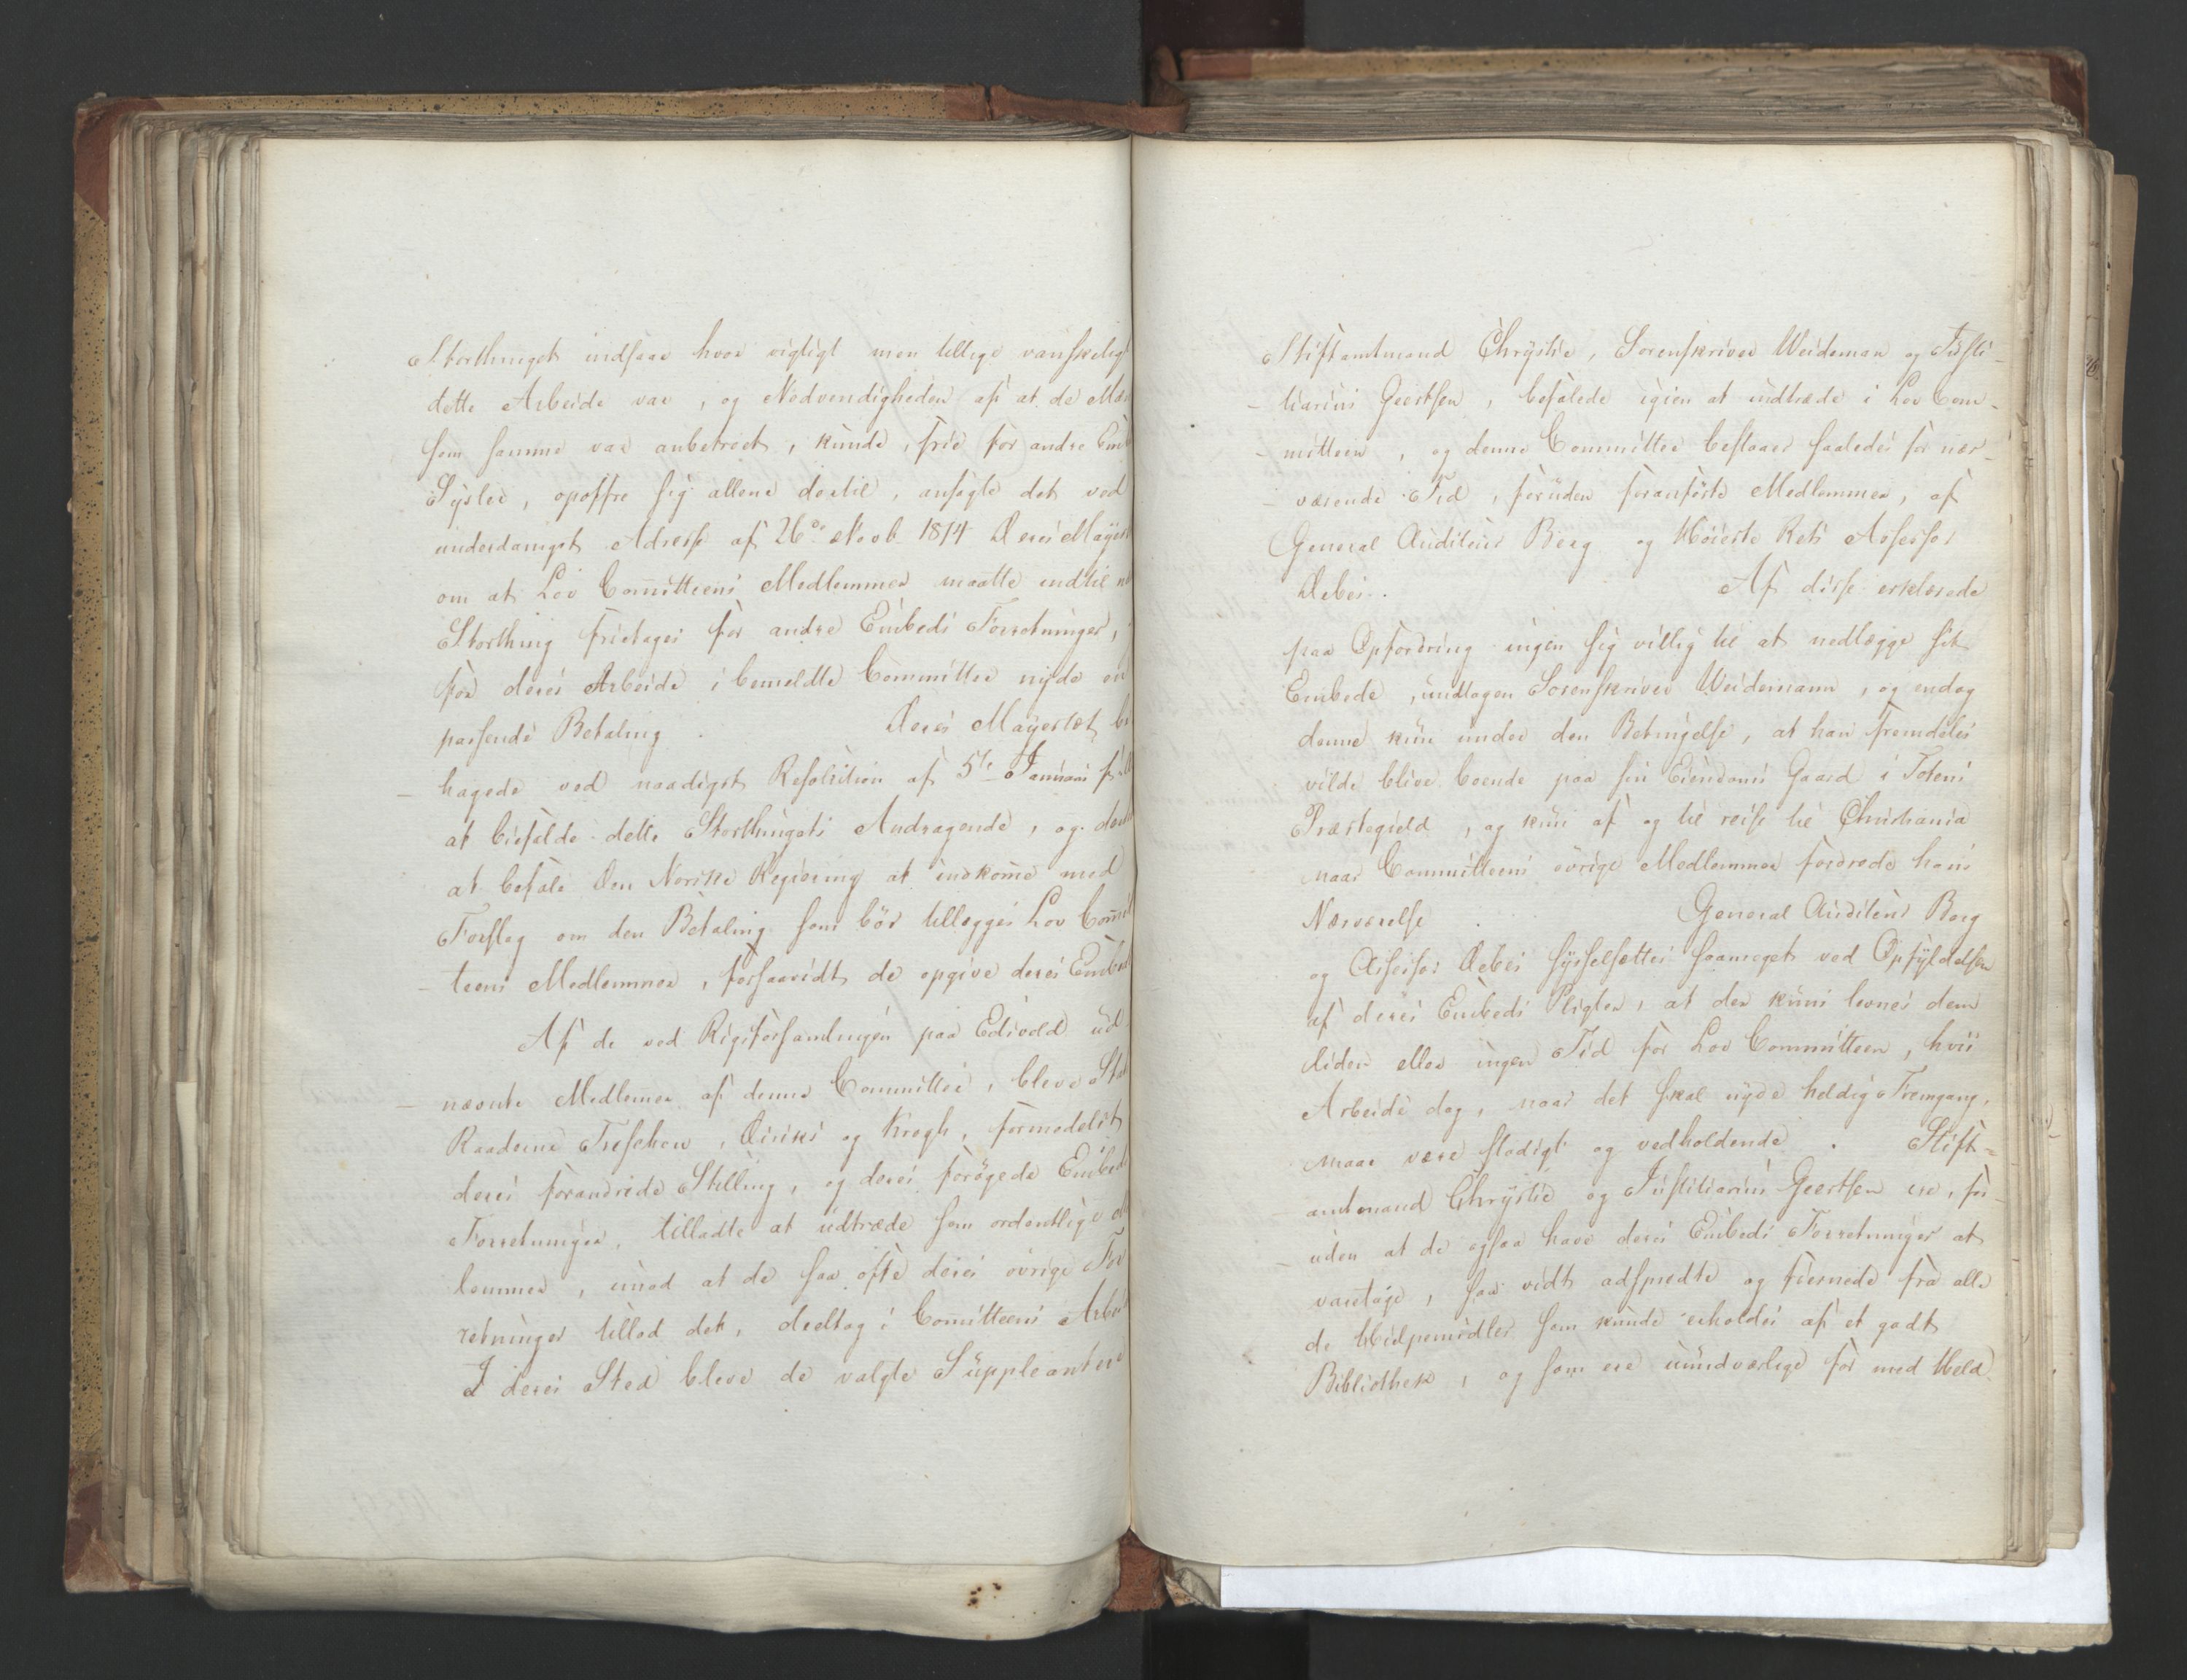 Storthinget indsaae hvor vigtigt men tillige vanskeligt
dette Arbeide var, og Nødvendigheden af at de Mæn
som samme var anbetroet, kunde, frie for andre Emb
Sysler, opoffre sig allene dertil, ansøgte det ved
underdanigst Adresse af 26de Novb 1814 Deres Mayest
om at Lov Committeens Medlemmer maatte indtil
Storthing fritages for andre Embeds Forretninger,
for deres Arbeide i bemeldte Committee nyde en
passende Betaling. Deres Mayestæt be
- hagede ved naadigst Resolution af 5te Januari
at bifalde dette Storthingets Andragende, og
at befale Den Norske Regiering at indkomme med
Forslag om den Betaling som bør tillægges Lov Commit
- teens Medlemmer, forsaavidt de opgive deres Embed
Af de ved Rigsforsamlingen paa Eidsvold ud
- nævnte Medlemer af denne Committee, bleve Stat
Raaderne Treschow, Diriks og Krogh, formedelst
deres forandrede Stilling, og deres forøgede Embed
Forretninger, tilladte at udtræde som ordentlige
lemmer, imod at de saa ofte deres øvrige For
retninger tillod det, deeltog i Comitteens Arbei
I deres Sted bleve de valgte Suppleantere
Stiftamtmand Chrystie, Sorenskriver Weideman og Justi-
- tiarius Geertsen, befalede igien at indtræde i Lov Com-
- mitteen, og denne Committee bestaaer saaledes for nær-
- værende Tid, foruden foranførte Medlemmer, af
General Auditeur Berg og Høieste Rets Assessor
Debes. Af disse erklærede
paa Opfordring ingen sig villig til at nedlægge sit
Embede, undtagen Sorenskriver Weidemann, og endog
denne kun under den Betingelse, at han fremdeles
vilde blive boende paa sin Eiendoms Gaard i Totens
Præstegield, og kun af og til reise til Christiania
naar Committeens øvrige Medlemmer fordrede hans
Nærværelse. General Auditeur Berg
og Assessor Debes sysselsættes saameget ved Opfyldelsen
af deres Embeds Pligter, at der kuns levnes dem
liden eller ingen Tid for Lov Committeen, hvis
Arbeide dog, naar det skal nyde heldig Fremgang,
maae være stadigt og vedholdende. Stift=
- amtmand Chrystie og Justitiarius Geertsen ere, for-
- uden at de ogsaa have deres Embeds Forretninger at
varetage, saa vidt adspredte og fiernede fra alle
de Hielpemidler som kunde erholdes af et godt
Bibliothek, og som ere uundværlige for med Held